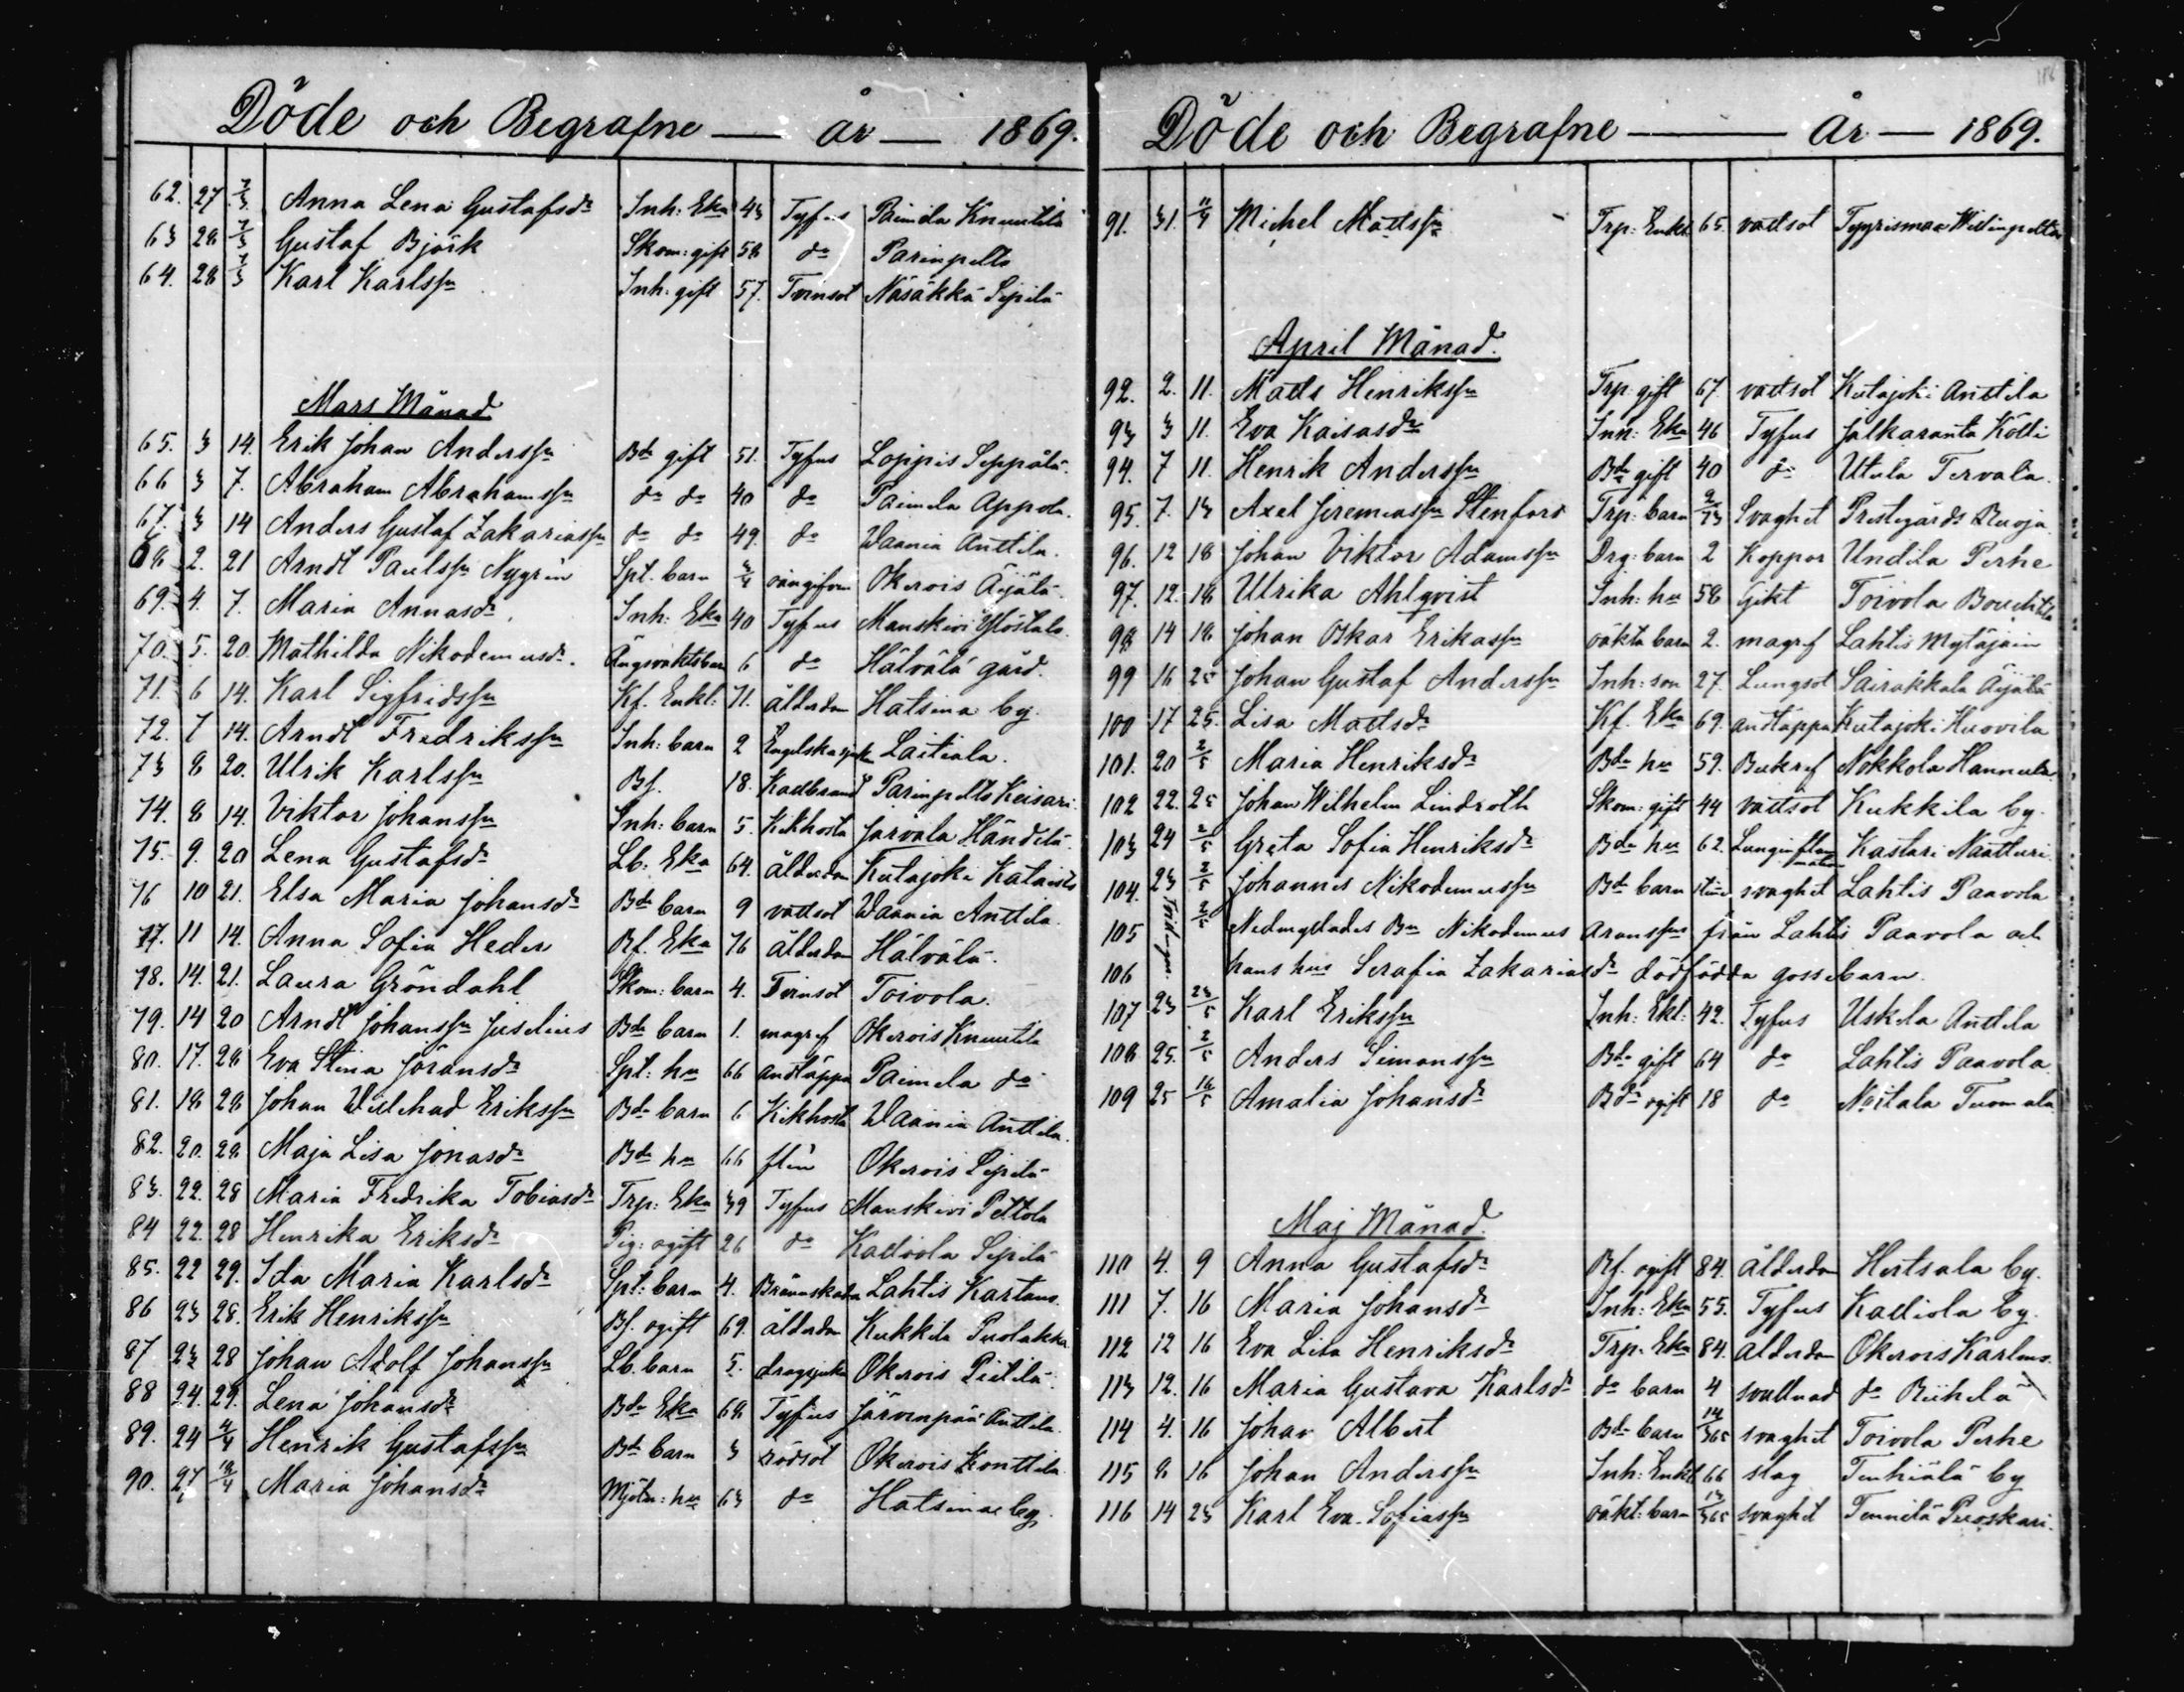 Döde och Begrafne — år — 1869.
62. 27 7/3 Anna Lena Gustafsdr Inh: Eka 43 Tyfus Paimela Knuutila
63 28 7/3 Gustaf Björk Skom: gift 58 do Paringelto
64. 28 7/3 Karl Karlssn Inh. gift 57. Tvinsot Näsäkkä Sipilä
Mars Månad
65. 3 14. Erik Johan Anderssn Bde gift 51. Tyfus Loppis Seppälä.
66 3 7. Abraham Abrahamssn do do 40 do Paimela Appola.
67. 3 14 Anders Gustaf Zakariassn do do 49. do Waania Anttila.
68 2. 21 Arndt Paulssn Nygrén Spt. barn 3/4 Okerois Äijälä.
69. 4. 7. Maria Annasdr. Inh: Eka 40 Tyfus Manskivi Ylöstalo.
70. 5. 20. Mathilda Nikodemusdr. Ängsvaktsbarn 6 do Hälvälä gård.
71. 6 14. Karl Sigfridssn Kf. Enkl: 71. ålderdom Hatsina by.
72. 7 14. Arndt Fredrikssn Inh: barn 2 Engelska sjukan Laitiala.
73 8 20. Ulrik Karlssn Bf. 18. Kallbrand Paringelto Keisari.
74. 8 14. Viktor Johanssn Inh: barn 5. Kikhosta Jarvala Händilä.
75. 9. 20 Lena Gustafsdr Lb. Eka 64. ålderdom Kutajoki Kataisto
76 10 21. Elsa Maria Johansdr Bde barn 9 vattsot Waania Anttila.
77. 11 14. Anna Sofia Heder Bf. Eka 76 ålderdom Hälvälä.
78. 14. 21. Laura Gröndahl Skom: barn 4. Tvinsot Toivola.
79. 14 20 Arndt Johanssn Juselius Bde barn 1. magref Okerois Knuutila
80. 17. 28 Eva Stina Göransdr Spt: hu 66 andtäppa Paimela do
81. 18 28 Johan Willehad Erikssn Bde barn 6 Kikhosta Waania Anttila.
82. 20. 28 Maja Lisa Jonasdr Bde hu 66 Okerois Sipilä
83. 22. 28 Maria Fredrika Tobiasdr Trp: Eka 39 Tyfus Manskivi Peltola
84 22. 28 Henrika Eriksdr Pig: ogift 26 do Kalliola Sipilä
85. 22 29. Ida Maria Karlsdr Spt: barn 4. Brännskada Lahtis Kartano.
86 23 28. Erik Henrikssn Bf. ogift 69. ålderdom Kukkila Puolakka
87. 23 28 Johan Adolf Johanssn Lb. barn 5. dragsjuka Okerois Pietilä.
88 24. 29. Lena Johansdr Bde Eka 68 Tyfus Järvenpää Anttila.
89. 24 4/4 Henrik Gustafssn Bde barn 3 rödsot Okerois Konttila
90. 27 18/4 Maria Johansdr Mjöln: hu 63 do Hatsina by.
Döde och Begrafne — År — 1869.
91. 31. 11/4 Michel Mattssn Trp: Enkl. 65. vattsot Tyyrismaa
April Månad.
92. 2. 11. Matts Henrikssn Trp: gift 67. vattsot Kutajoki Anttila
93 3 11. Eva Kaisasdr Inh: Eka 46 Tyfus Jalkaranta Kölli
94. 7 11. Henrik Anderssn Bde gift 40 do Utula Tervala.
95. 7. 13 Axel Jeremiassn Stenfors Trp: barn Svaghet Prestegårds
96. 12 18 Johan Viktor Adamssn Drg: barn 2 Koppor Undila Perhe
97. 12. 18 Ulrika Ahlqvist Inh: hu 58 Gikt Toivola
98 14 18 Johan Oskar Erikassn oäkta barn 2. magref Lahtis Mytäjäin
99 16 25 Johan Gustaf Anderssn Inh: son 27. Lungsot Sairakkala Äijälä
100 17 25. Lisa Mattsdr Kf. Eka 69. andtäppa Kutajoki Huovila
101. 20 2/5 Maria Henriksdr Bde hu 59. Bukref Nokkola Hannula
102 22. 25 Johan Wilhelm Lindroth Skom: gift 44 vattsot Kukkila by.
103 24 2/5 Greta Sofia Henriksdr Bde hu 62. Lunginflammation Kastari Naatturi
104. 23 2/5 Johannes Nikodemussn Bde barn svaghet Lahtis Paavola
105 Tvillingar. 2/5 Nedergålades Bn Nikodemus Aronssns från Lahtis Paavola och
106 hans hus Serafia Zakariasdr dödfödda gossebarn.
107 23 23/5 Karl Erikssn Inh: Ekl: 42. Tyfus Uskila Anttila
108 25. 2/5 Anders Simonssn Bde gift 64 do Lahtis Paavola
109 25 16/5 Amalia Johansdr Bde ogift 18 do Noitala Tuomala
Maj Månad.
110 4. 9 Anna Gustafsdr Bf. ogift 84. ålderdom Hertsala by.
111 7. 16 Maria Johansdr Inh: Eka 55. Tyfus Kalliola by.
112 12 16 Eva Lisa Henriksdr Trp. Eka 84. ålderdom Okerois Karlmo.
113 12. 16 Maria Gustava Karlsdr do barn 4 svullnad do Riihelä
114 4. 16 Johan Albert Bde barn 14/365 svaghet Toivola Perhe
115 8 16 Johan Anderssn Inh: Enkl 66 slag Tenhiälä by
116 14 23 Karl Eva Sofiassn oäkt: barn 13/365 svaghet Tennilä Puoskari.